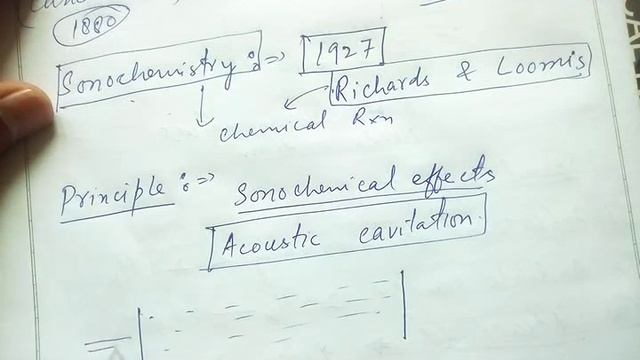 1880
Sonochemistry :⇒ 1927
Richards & Loomis
chemical Rxn
Principle :⇒ Sonochemical effects
Acoustic cavitation.